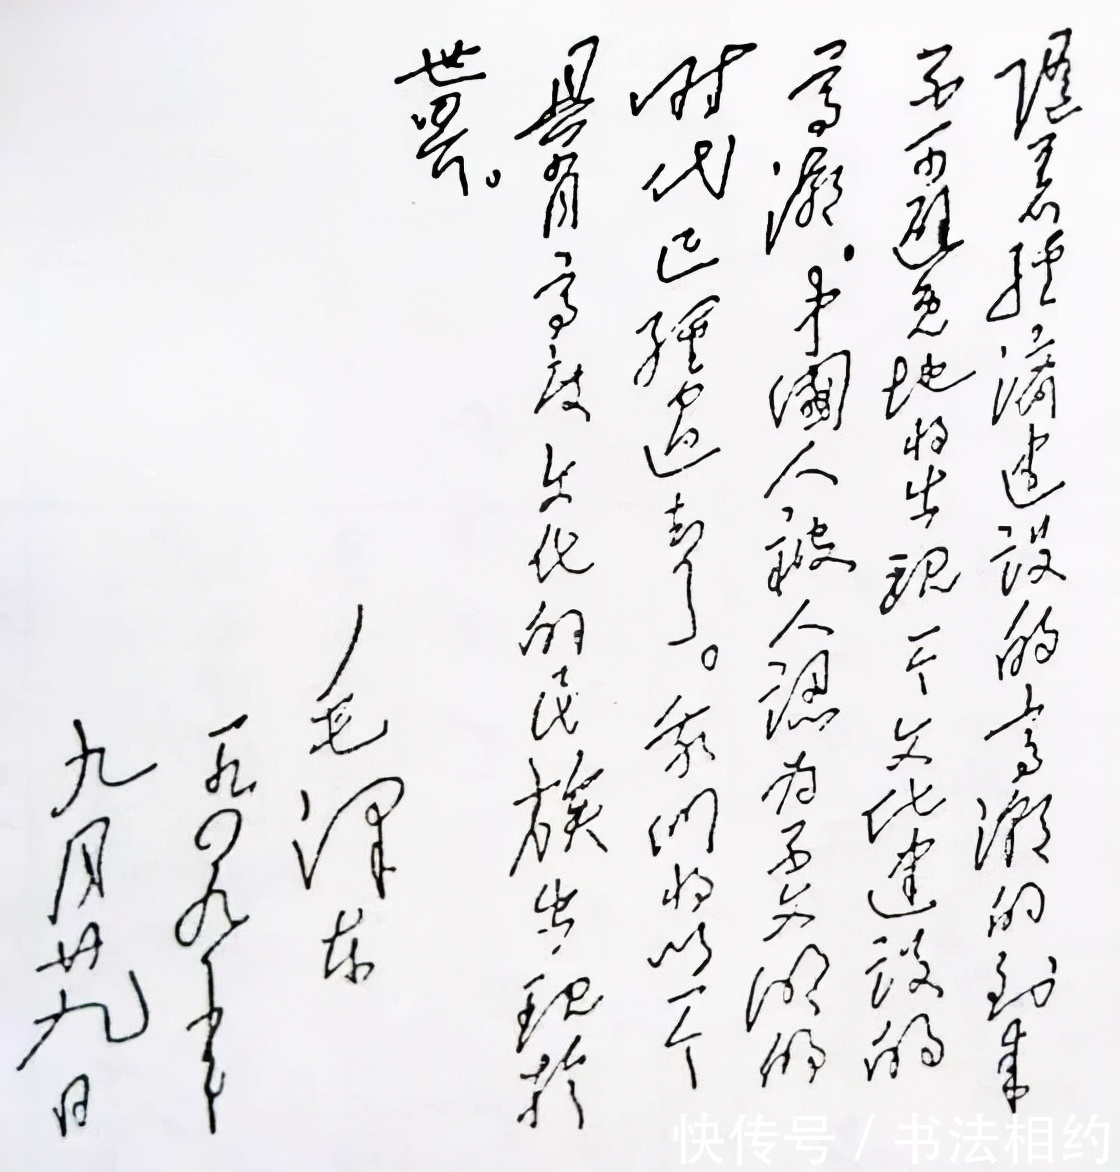 随着經济建设的高潮的到来
不可避免地将出现一个文化建设的
高潮。中國人被人認为不文明的
时代已經过去了。我們将以一个
具有高度文化的民族出现於
世界。
毛澤东
一九四九年
九月廿九日
快传号 / 书法相约